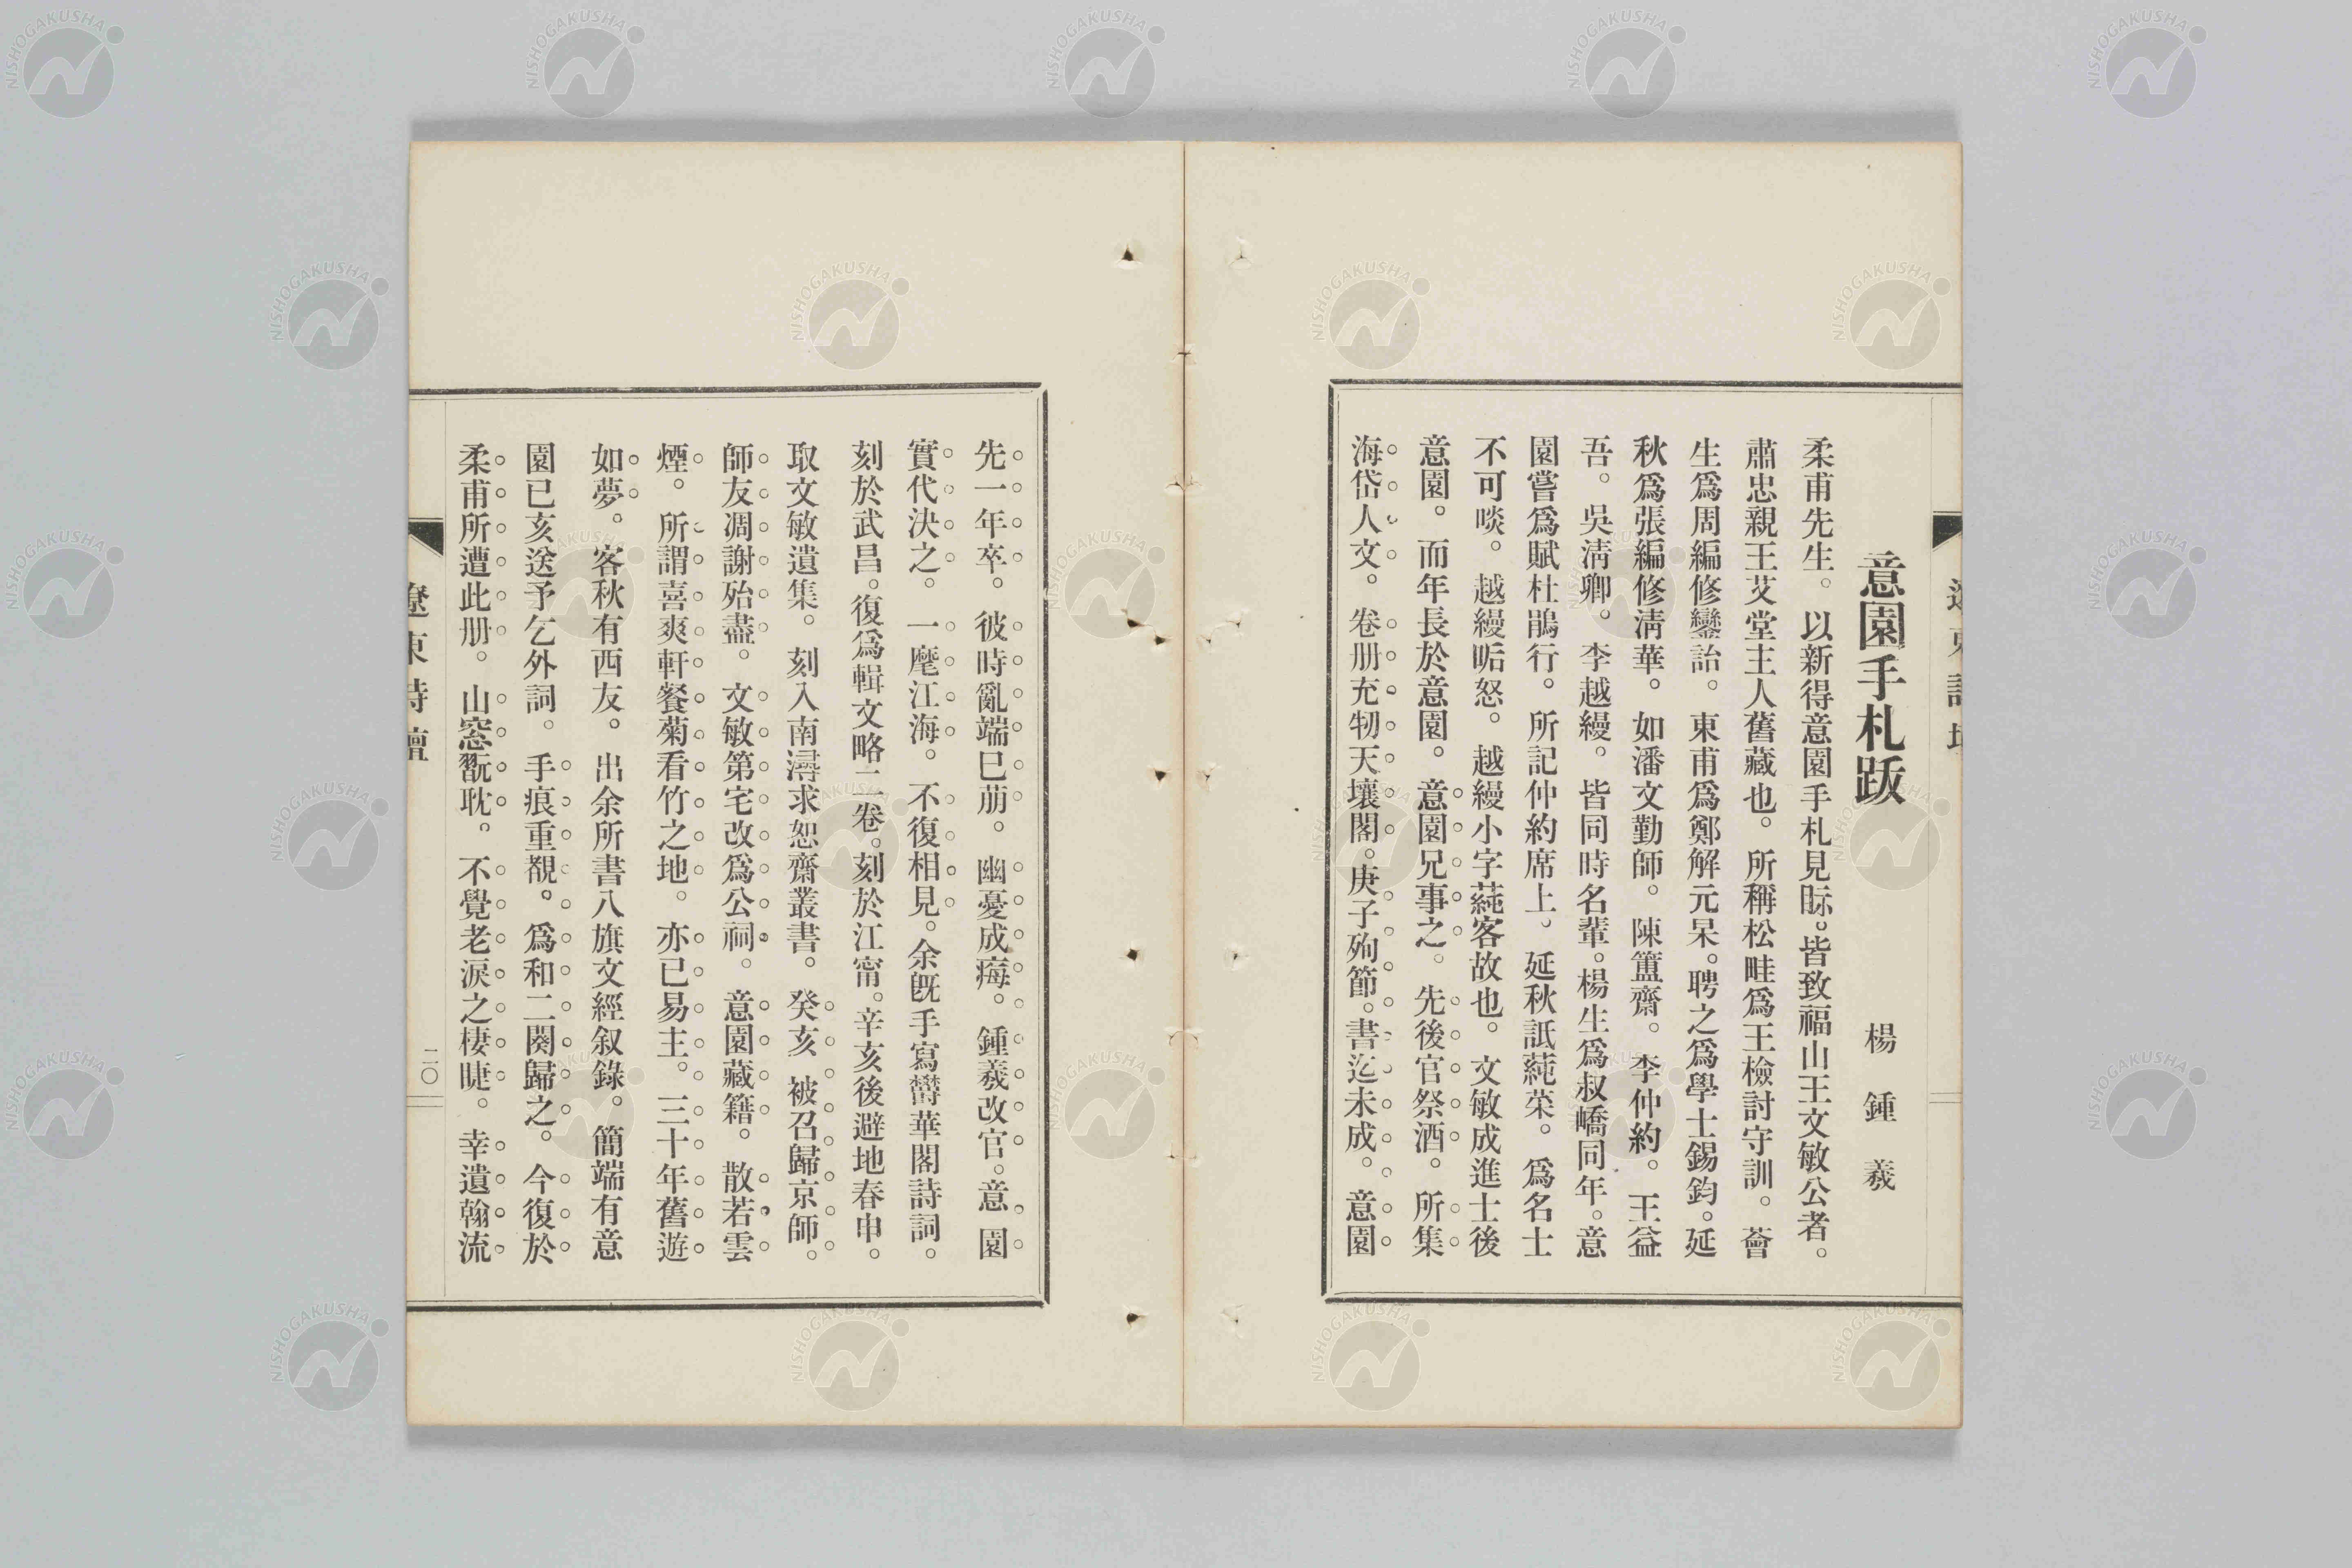 意園手札跋
楊鍾羲
柔甫先生。以新得意園手札見眎。皆致福山王文敏公者。
肅忠親王艾堂主人舊藏也。所稱松畦爲王檢討守訓。薈
生爲周編修鑾詒。東甫爲鄭解元杲。聘之爲學士錫鈞。延
秋爲張編修淸華。如潘文勤師。陳簠齋。李仲約。王益
吾。吳淸卿。李越縵。皆同時名輩。楊生爲叔嶠同年。意
園嘗爲賦杜鵑行。所記仲約席上。延秋詆蒓荣。爲名士
不可啖。越縵㫧怒。越縵小字蒓客故也。文敏成進士後
意園。而年長於意園。意園兄事之。先後官祭酒。所集
海岱人文。卷册充牣天壤閣。庚子殉節。書迄未成。意園
先一年卒。彼時亂端已萠。幽憂成痗。鍾羲改官。意園
實代決之。一麾江海。不復相見。余旣手寫欝華閣詩詞。
刻於武昌。復爲輯文略二卷。刻於江甯。辛亥後避地春申。
取文敏遺集。刻入南潯求恕齋叢書。癸亥被召歸京師。
師友凋謝殆盡。文敏第宅改爲公祠。意園藏籍。散若雲
煙。所謂喜爽軒餐菊看竹之地。亦已易主。三十年舊遊
如夢。客秋有西友。出余所書八旗文經叙錄。簡端有意
園己亥送予乞外詞。手痕重覩。爲和二闋歸之。今復於
柔甫所遭此册。山窓翫耽。不覺老淚之棲睫。幸遺翰流
遼東詩壇
二〇